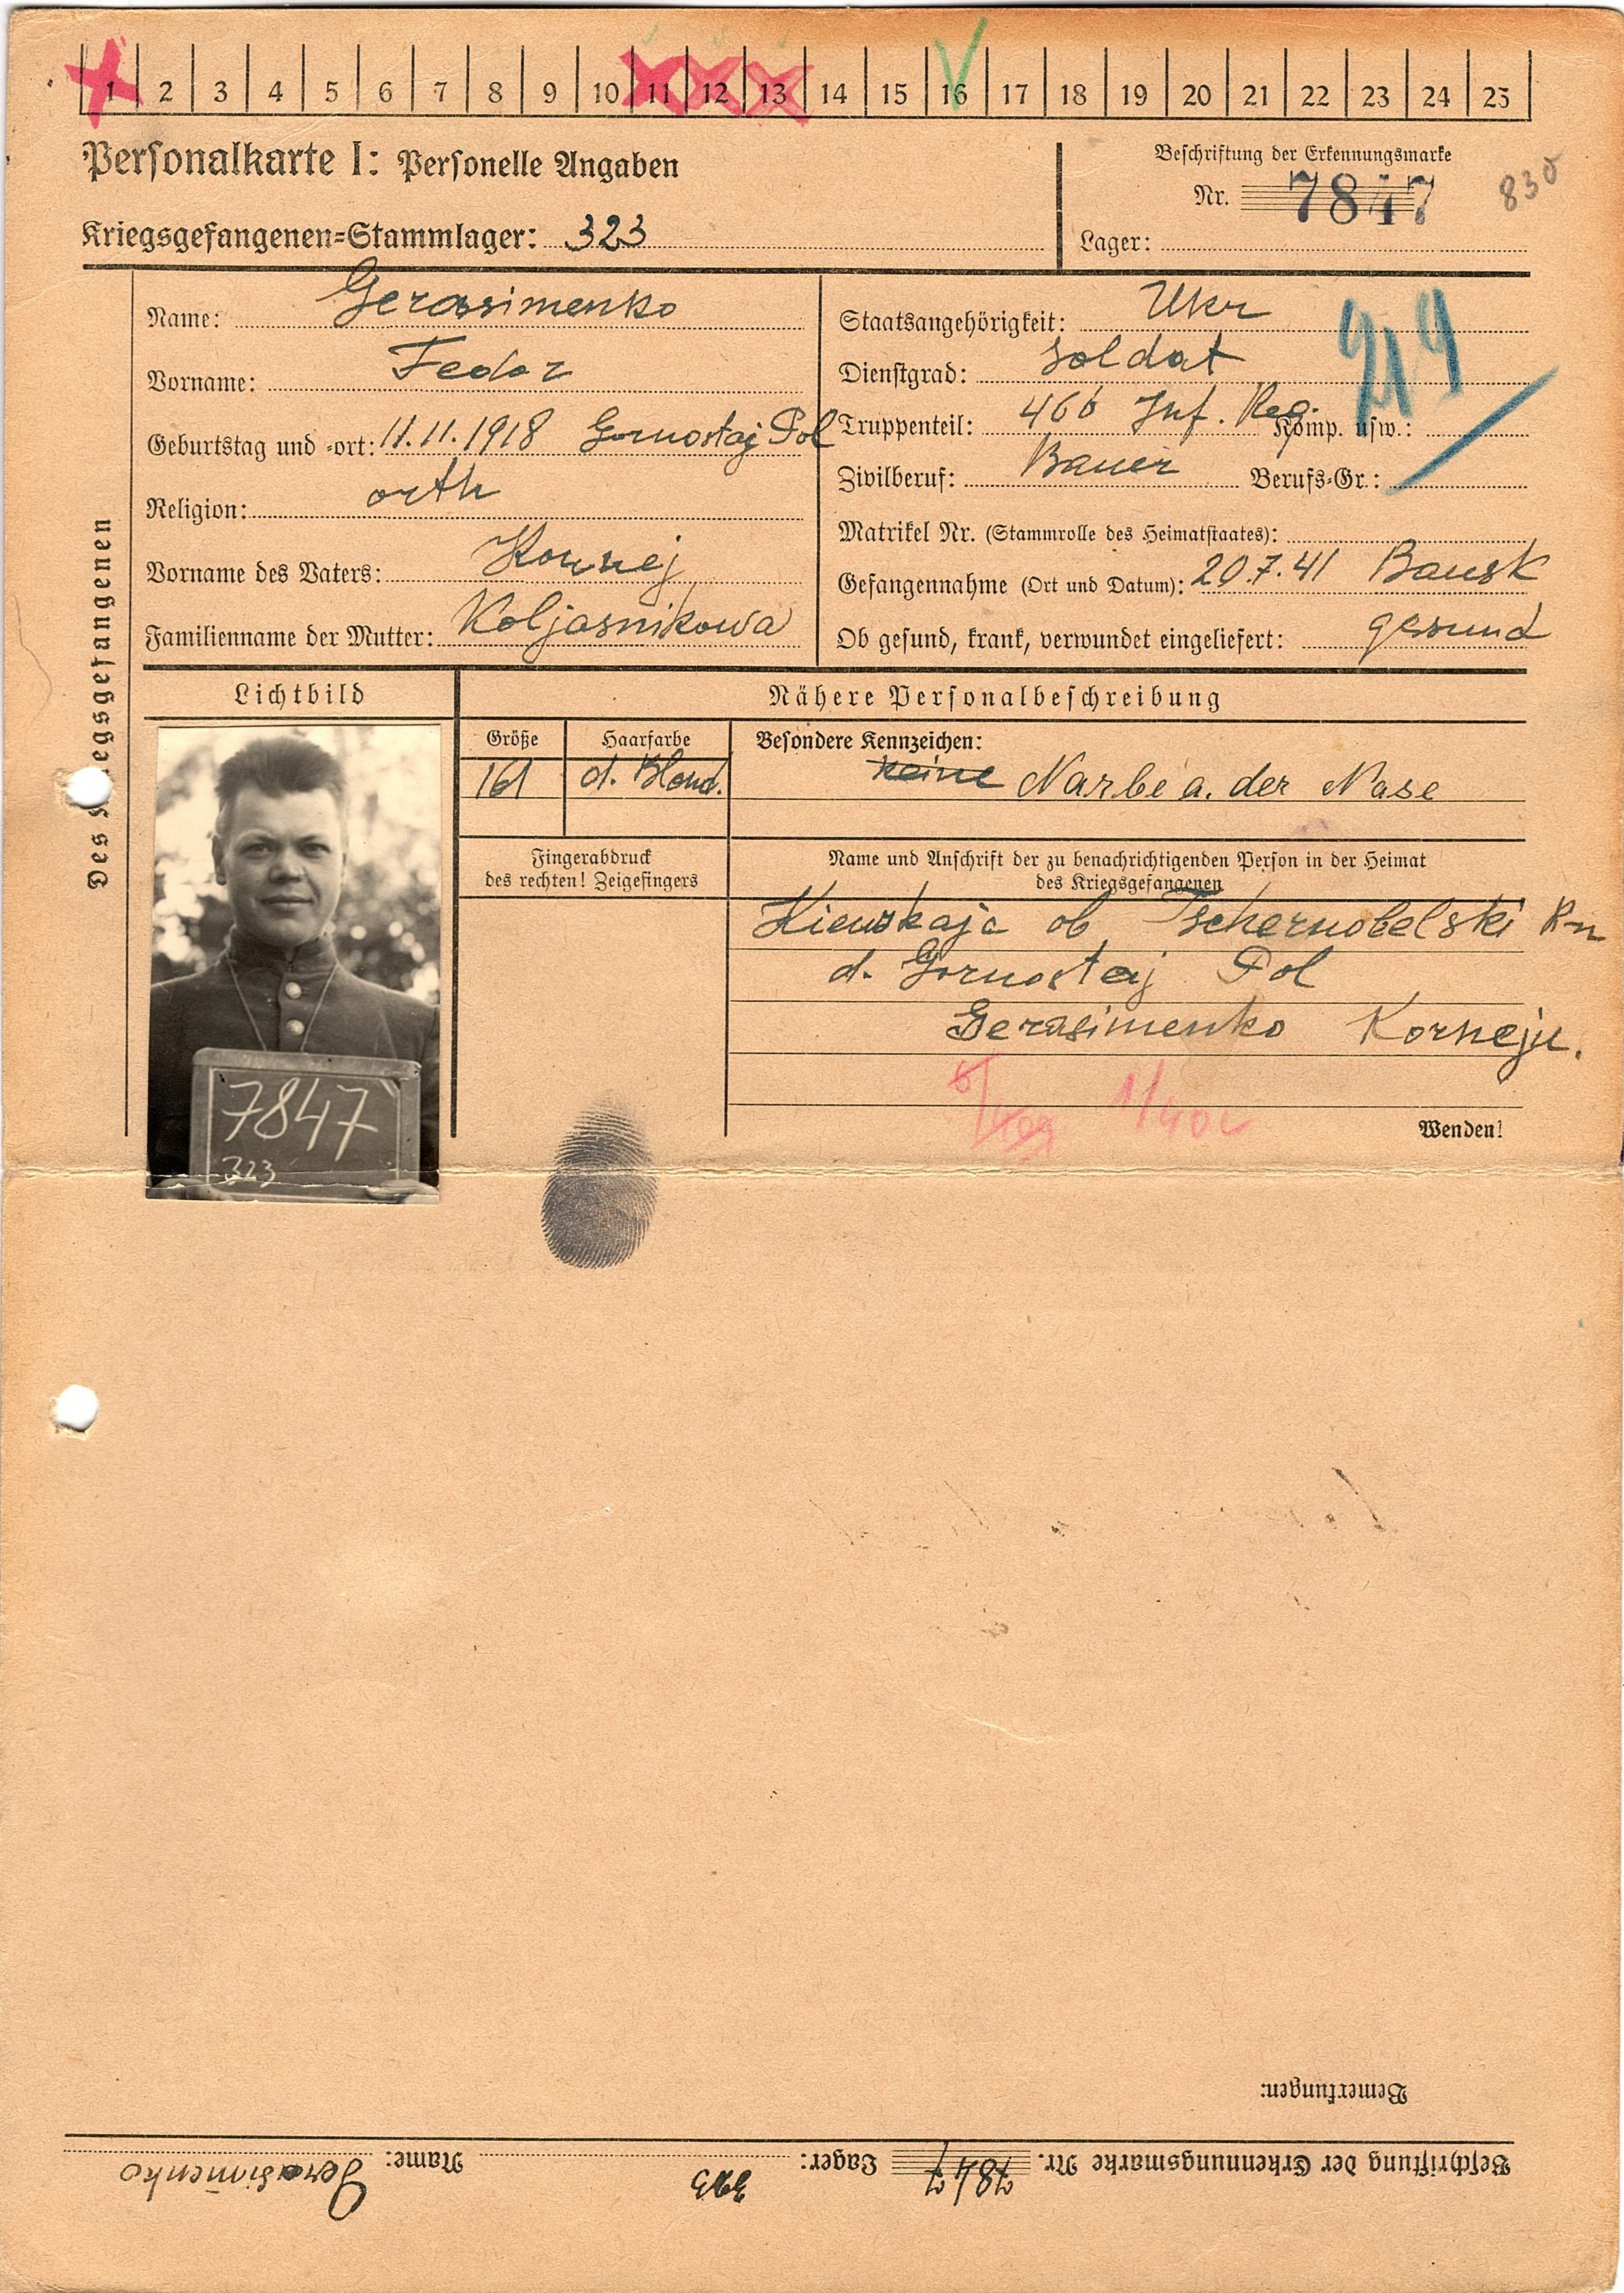 1 2 3 4 5 6 7 8 9 10 11 12 13 14 15 16 17 18 19 20 21 22 23 24 25
Personalkarte I: Personelle Angaben
Beschriftung der Erkennungsmarke
Nr. 7847
830
Kriegsgefangenen=Stammlager: 323
Lager:
Des Kriegsgefangenen
Name: Gerassimenko
Vorname: Fedor
Geburtstag und =ort: 11.11.1918 Gornostaj Pol
Religion: orth
Vorname des Vaters: Kornej
Familienname der Mutter: Koljasnikowa
Staatsangehörigkeit: Ukr
Dienstgrad: Soldat
Truppenteil: 466 Inf. Reg. Komp. usw.:
Zivilberuf: Bauer Berufs=Gr.:
Matrikel Nr. (Stammrolle des Heimatstaates):
Gefangennahme (Ort und Datum): 20.7.41 Bausk
Ob gesund, krank, verwundet eingeliefert: gesund
Lichtbild
Nähere Personalbeschreibung
Größe
161
Haarfarbe
d. Blond.
Besondere Kennzeichen:
keine Narbe a. der Nase
Fingerabdruck
des rechten! Zeigefingers
Name und Anschrift der zu benachrichtigenden Person in der Heimat
des Kriegsgefangenen
Kiewskaja ob Tschernobelski R-n
d. Gornostaj Pol
Gerasimenko Korneju.
Wenden!
7847
323
Bemerkungen:
Beschriftung der Erkennungsmarke Nr. 7847 Lager: 323 Name: Gerasimenko